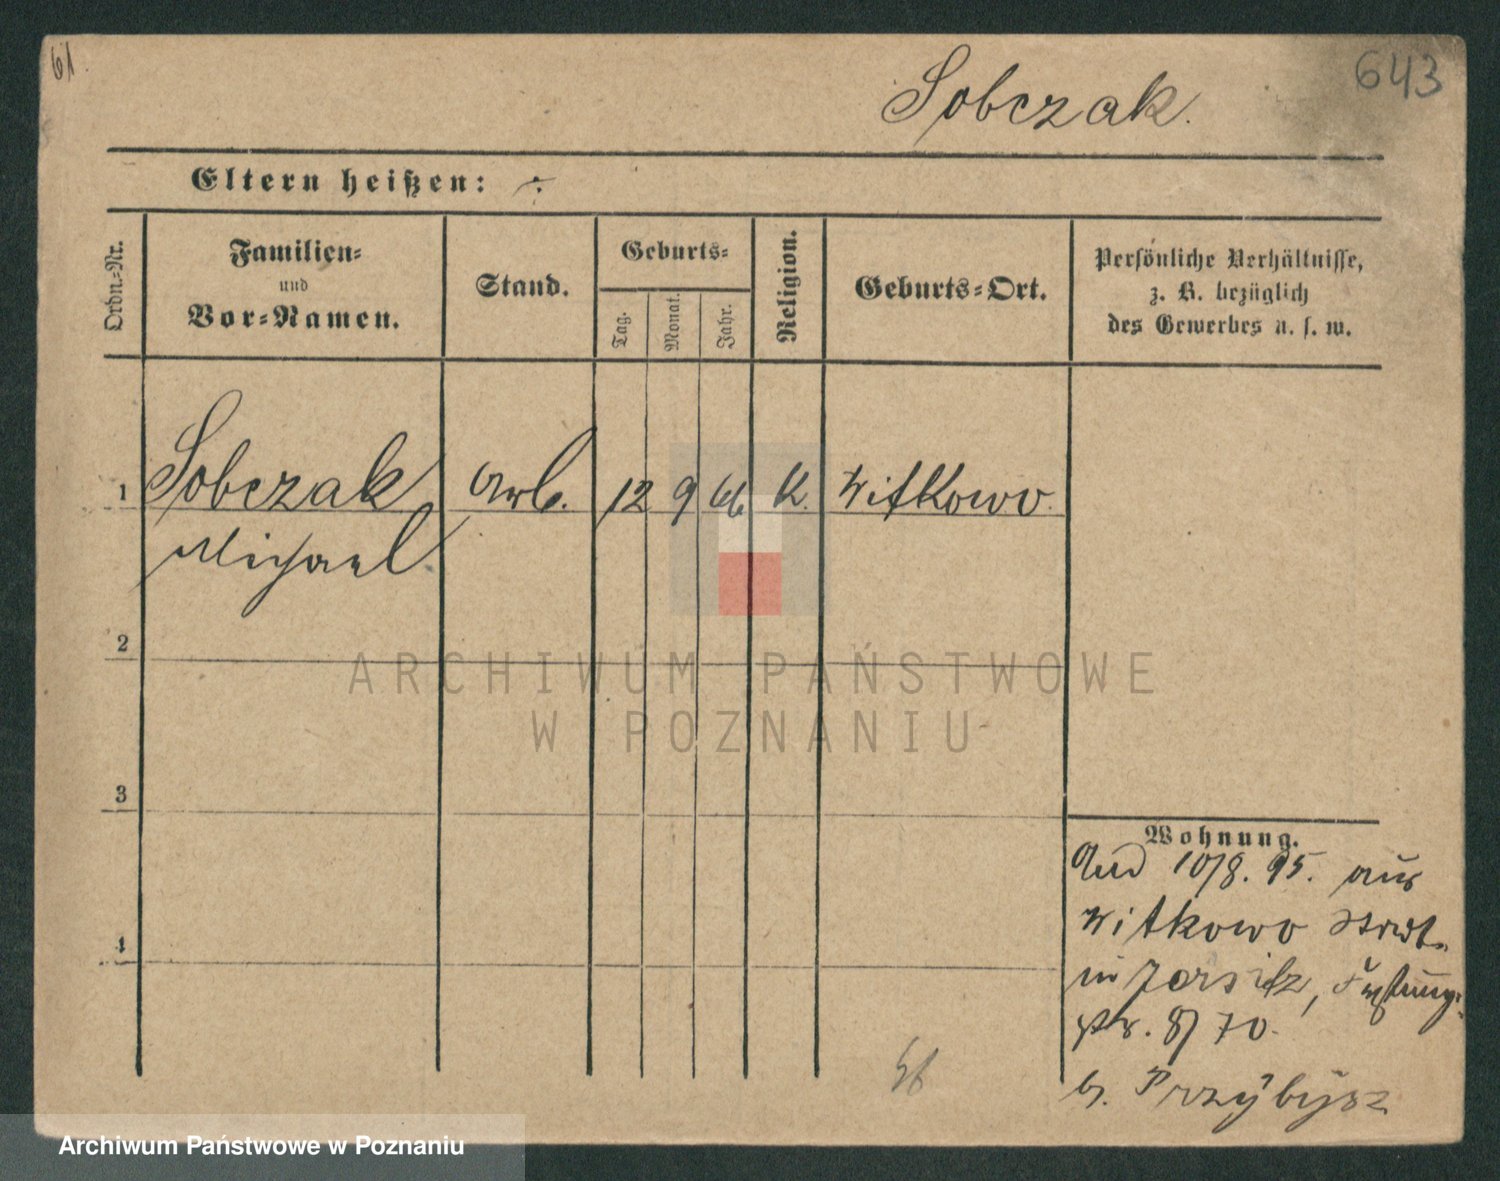 61.
643
Sobczak.
Eltern heißen: ·/·
Ordn.-Nr.
Familien-
und
Vor-Namen.
Stand.
Geburts-
Tag.
Monat.
Jahr.
Religion.
Geburts-Ort.
Persönliche Verhältnisse,
z. B. bezüglich
des Gewerbes u. s. w.
1 Sobczak Arb. 12 9 66. K. Witkowo.
Michael
2
3
4
Wohnung.
10/8. 95. aus
Witkowo
in Jersitz,
str. 8/70.
b. Przybysz
ARCHIWUM PAŃSTWOWE
W POZNANIU
Archiwum Państwowe w Poznaniu